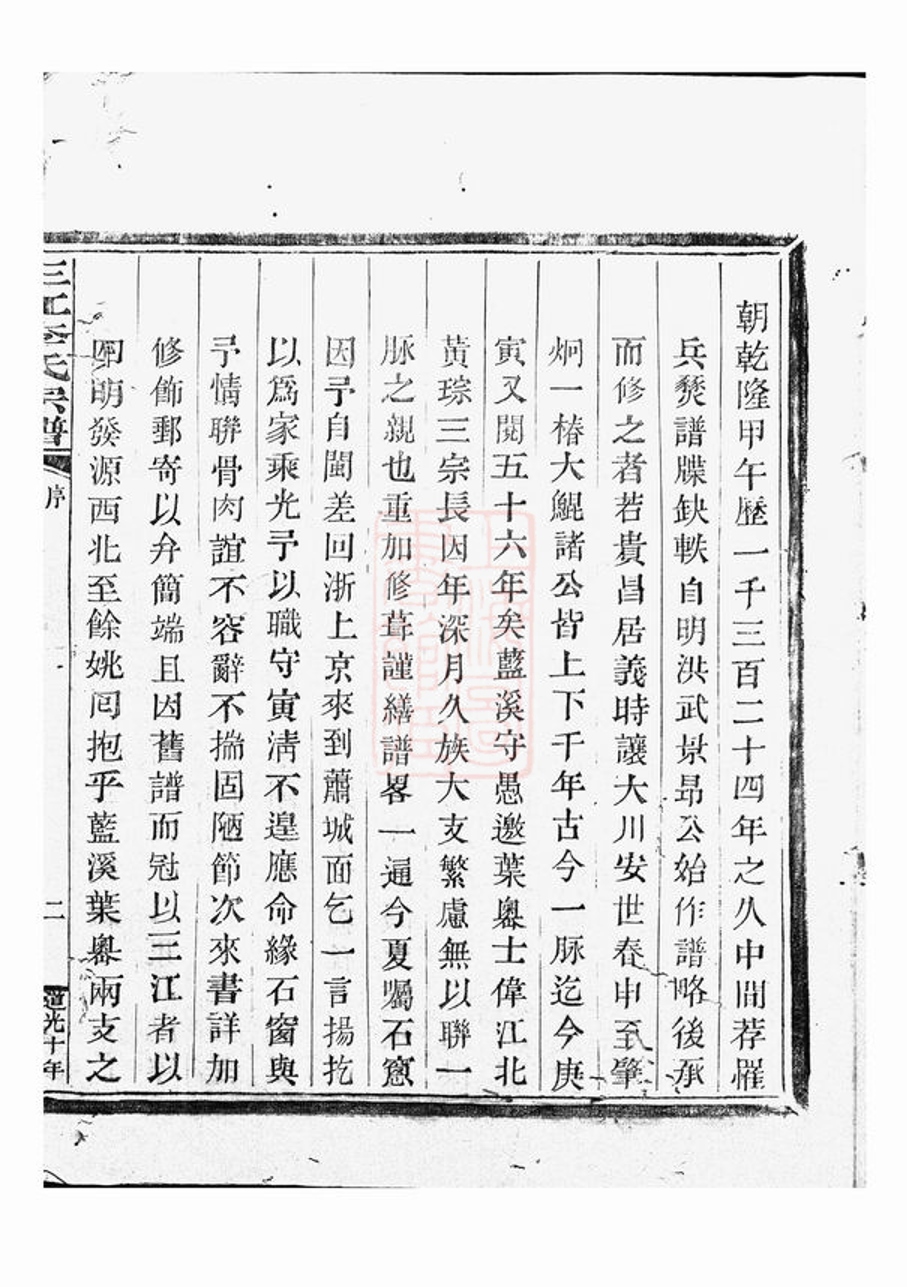 朝乾隆甲午歷一千三百二十四年之久中間荐罹
兵燹譜牒缺軼自明洪武景昻公始作譜略後承
而修之者若貴昌居義時讓大川安世春申至肇
炯一椿大鯤諸公皆上下千年古今一脉迄今庚
寅又閱五十六年矣藍溪守愚邀葉嶴士偉江北
黃琮三宗長因年深月久族大支繁慮無以聯一
脉之親也重加修葺謹繕譜畧一通今夏囑石窻
因予自閩差回浙上京來到蕭城面乞一言揚扢
以爲家乘光予以職守寅淸不遑應命緣石窗與
予情聯骨肉誼不容辭不揣固陋節次來書詳加
修飾郵寄以弁簡端且因舊譜而冠以三江者以
四明發源西北至餘姚囘抱乎藍溪葉嶴兩支之
三江李氏宗譜
序
二
道光十年